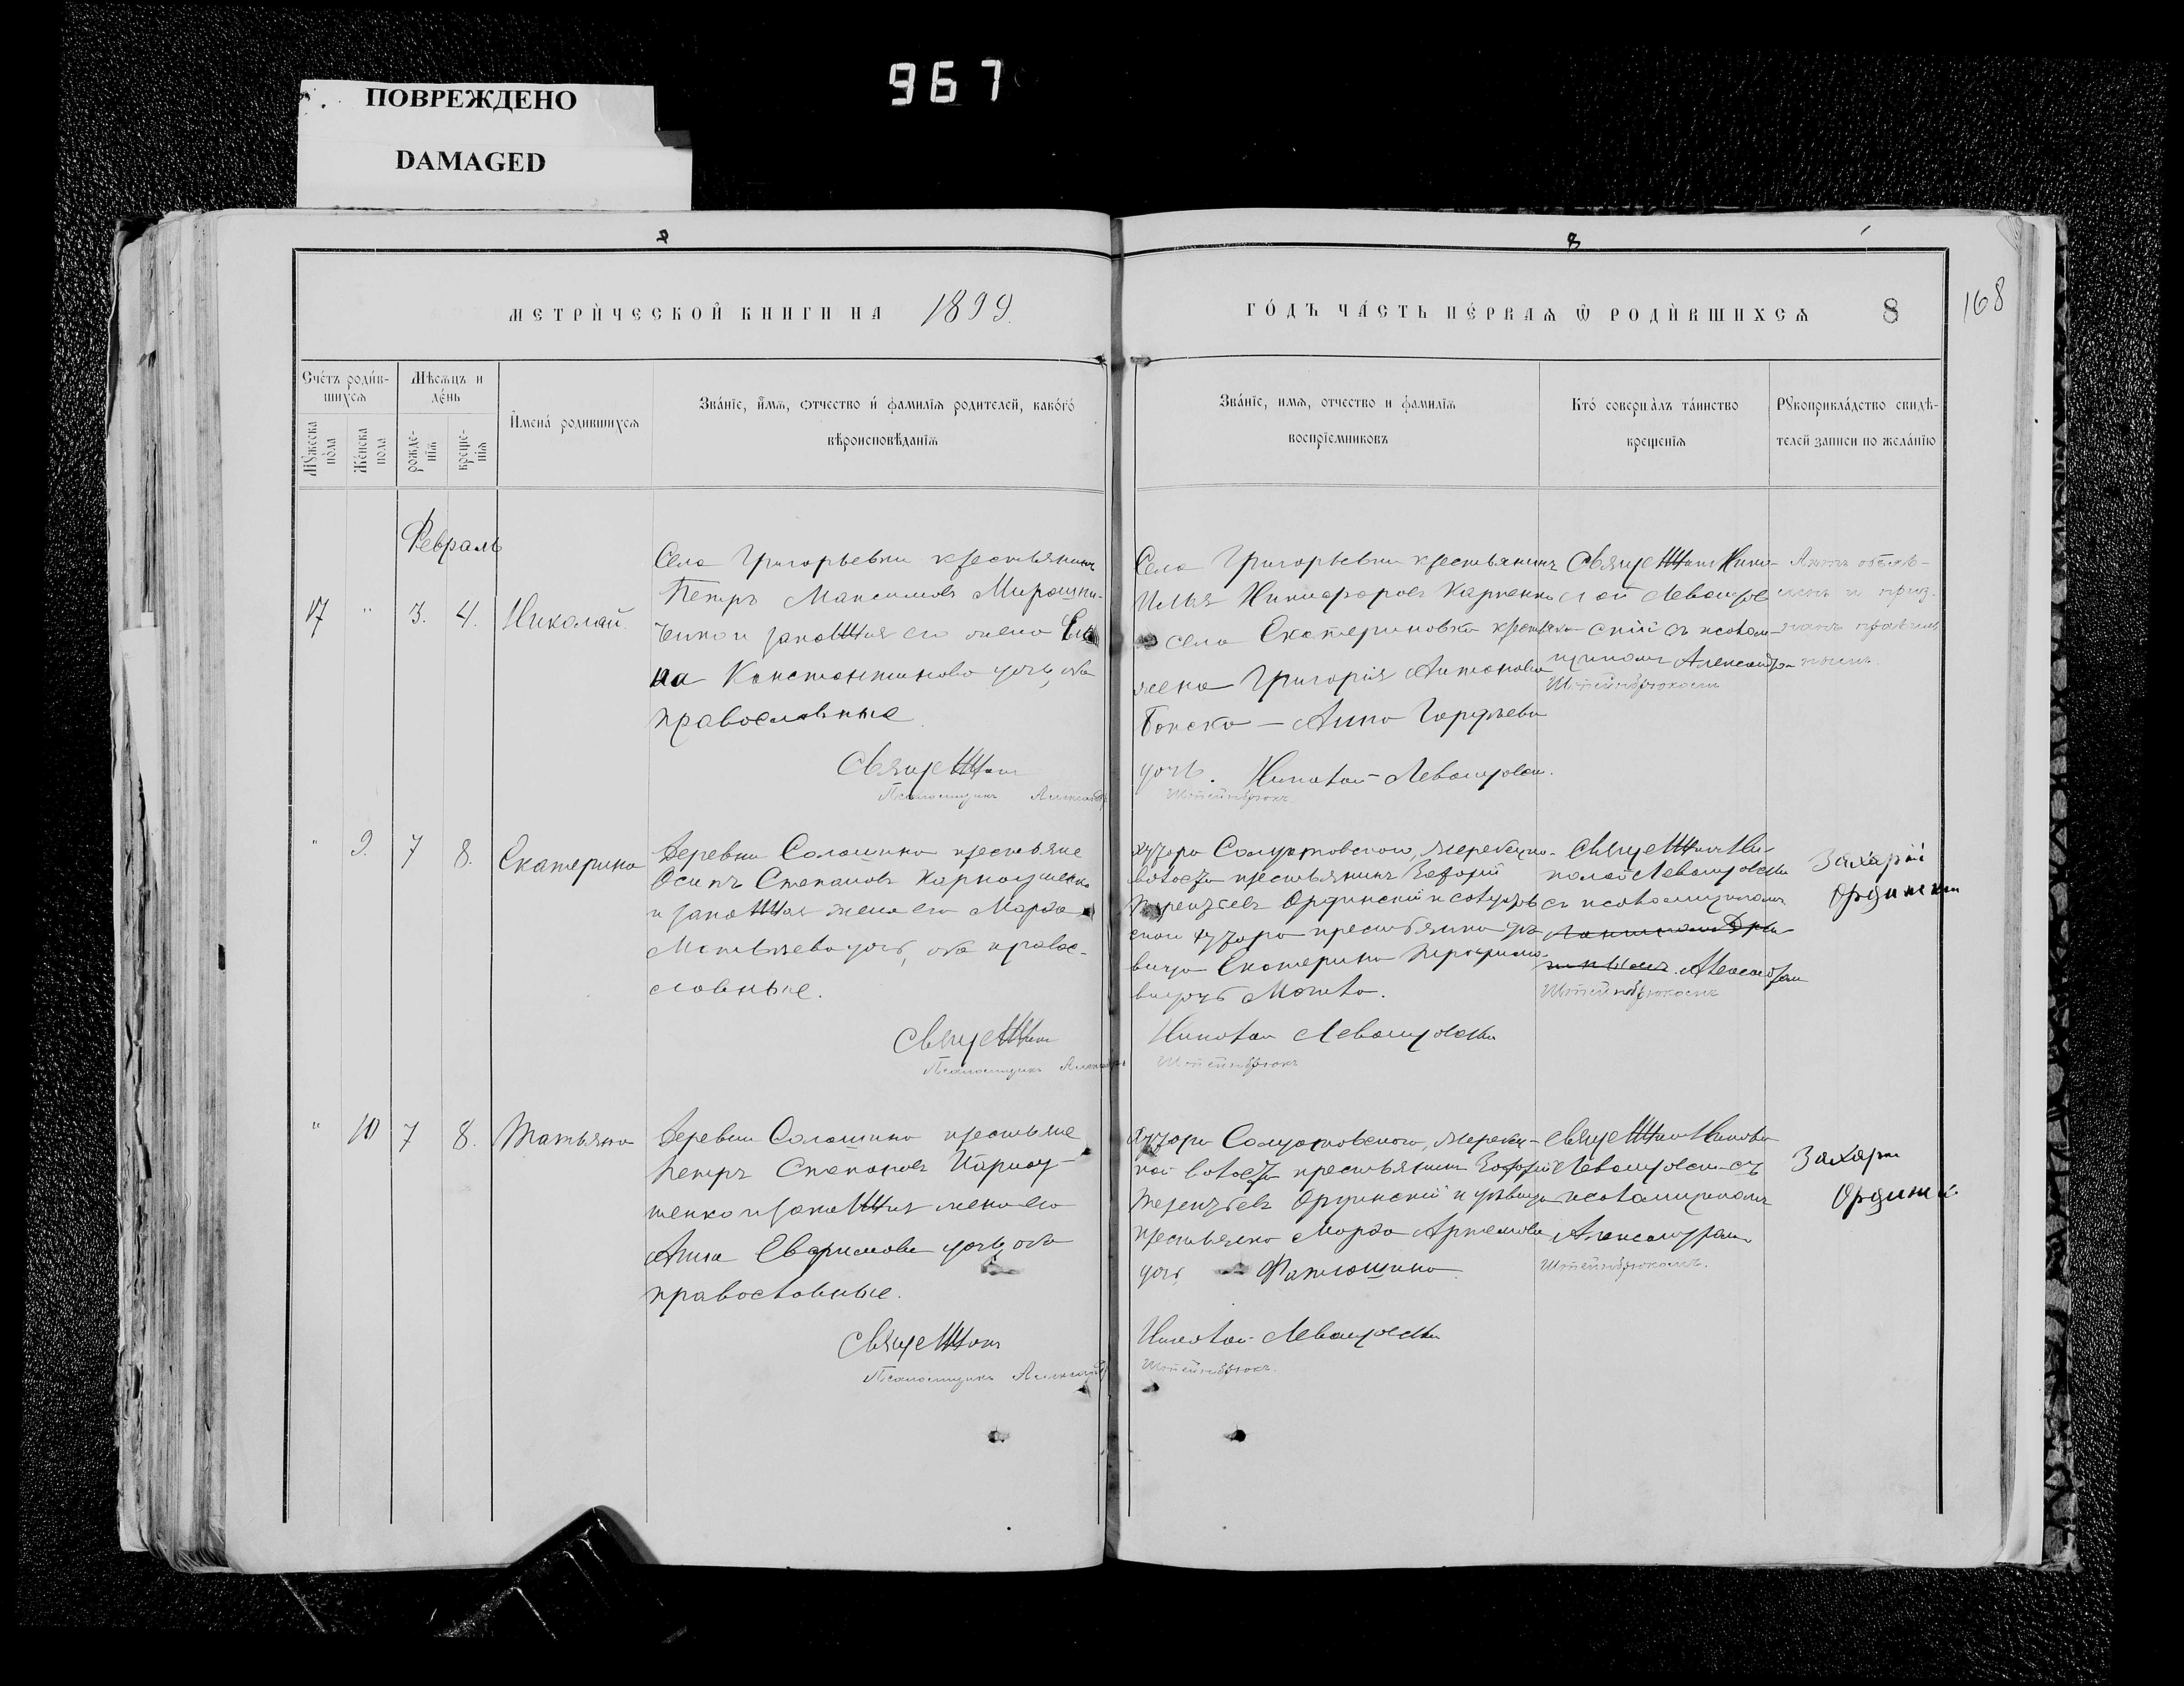 967
ПОВРЕЖДЕНО
DAMAGED
8
8
МЕТРИЧЕСКОЙ КНИГИ НА 1899.
ГОДЪ ЧАСТЬ ПЕРВАЯ Ѡ РОДИВШИХСЯ 8
168
Счетъ родив-
шихся
Мѣсяцъ и
день
Мужеска
пола
Женска
пола
рожде-
нія
креще-
нія
Имена родившихся
Званіе, имя, отчество и фамилія родителей, какого
вѣроисповѣданія
Званіе, имя, отчество и фамилія
воспріемниковъ
Кто совершалъ таинство
крещенія
Рукоприкладство свидѣ-
телей записи по желанію
Февраль
17 " 3. 4. Николай.
Села Григорьевки крестьянинъ
Петръ Максимовъ Мирошни-
ченко и законная его жена
на Константинова дочь, оба
православные.
Священникъ
Псаломщикъ Александръ
Села Григорьевки крестьянинъ
Илья Никифоровъ Карпенко
села Екатериновки крестьян-
жена Григорія Антонова
Анна Гордѣева
дочь. Николай Левандовскій.
Штейнбрюкъ.
Священникъ Нико-
лай Левандов-
скій съ псалом-
щикомъ Александромъ
Штейнбрюкомъ
Актъ объяв-
и приз-
нанъ правиль-
нымъ.
" 9. 7 8. Екатерина
Деревни Солошина крестьяне
Осипъ Степановъ Карноушенко
и законная жена его Марѳа
Матвѣева дочь, оба правос-
лавные.
Священникъ
Псаломщикъ Александръ
хутора
волости крестьянинъ Захарій
Терентьевъ Ординскій и
скаго хутора крестьянка дѣ-
вица Екатерина
дочь
Николай Левандовскій
Штейнбрюкъ
Священникъ Ни-
колай Левандовскій
съ псаломщикомъ
Александромъ
Штейнбрюкомъ
Захарій
Ординскій
" 10 7 8. Татьяна
Деревни Солошина крестьяне
Петръ Степановъ Карноу-
шенко и законная жена его
Анна Евдокимова дочь, оба
православные.
Священникъ
Псаломщикъ Александръ
хутора
волости крестьянинъ Захарій
Терентьевъ Ординскій и дѣвица
крестьянка Марѳа Артемова
дочь
Николай Левандовскій
Штейнбрюкъ.
Священникъ Николай
Левандовскій съ
псаломщикомъ
Александромъ
Штейнбрюкомъ.
Захарій
Ординскій